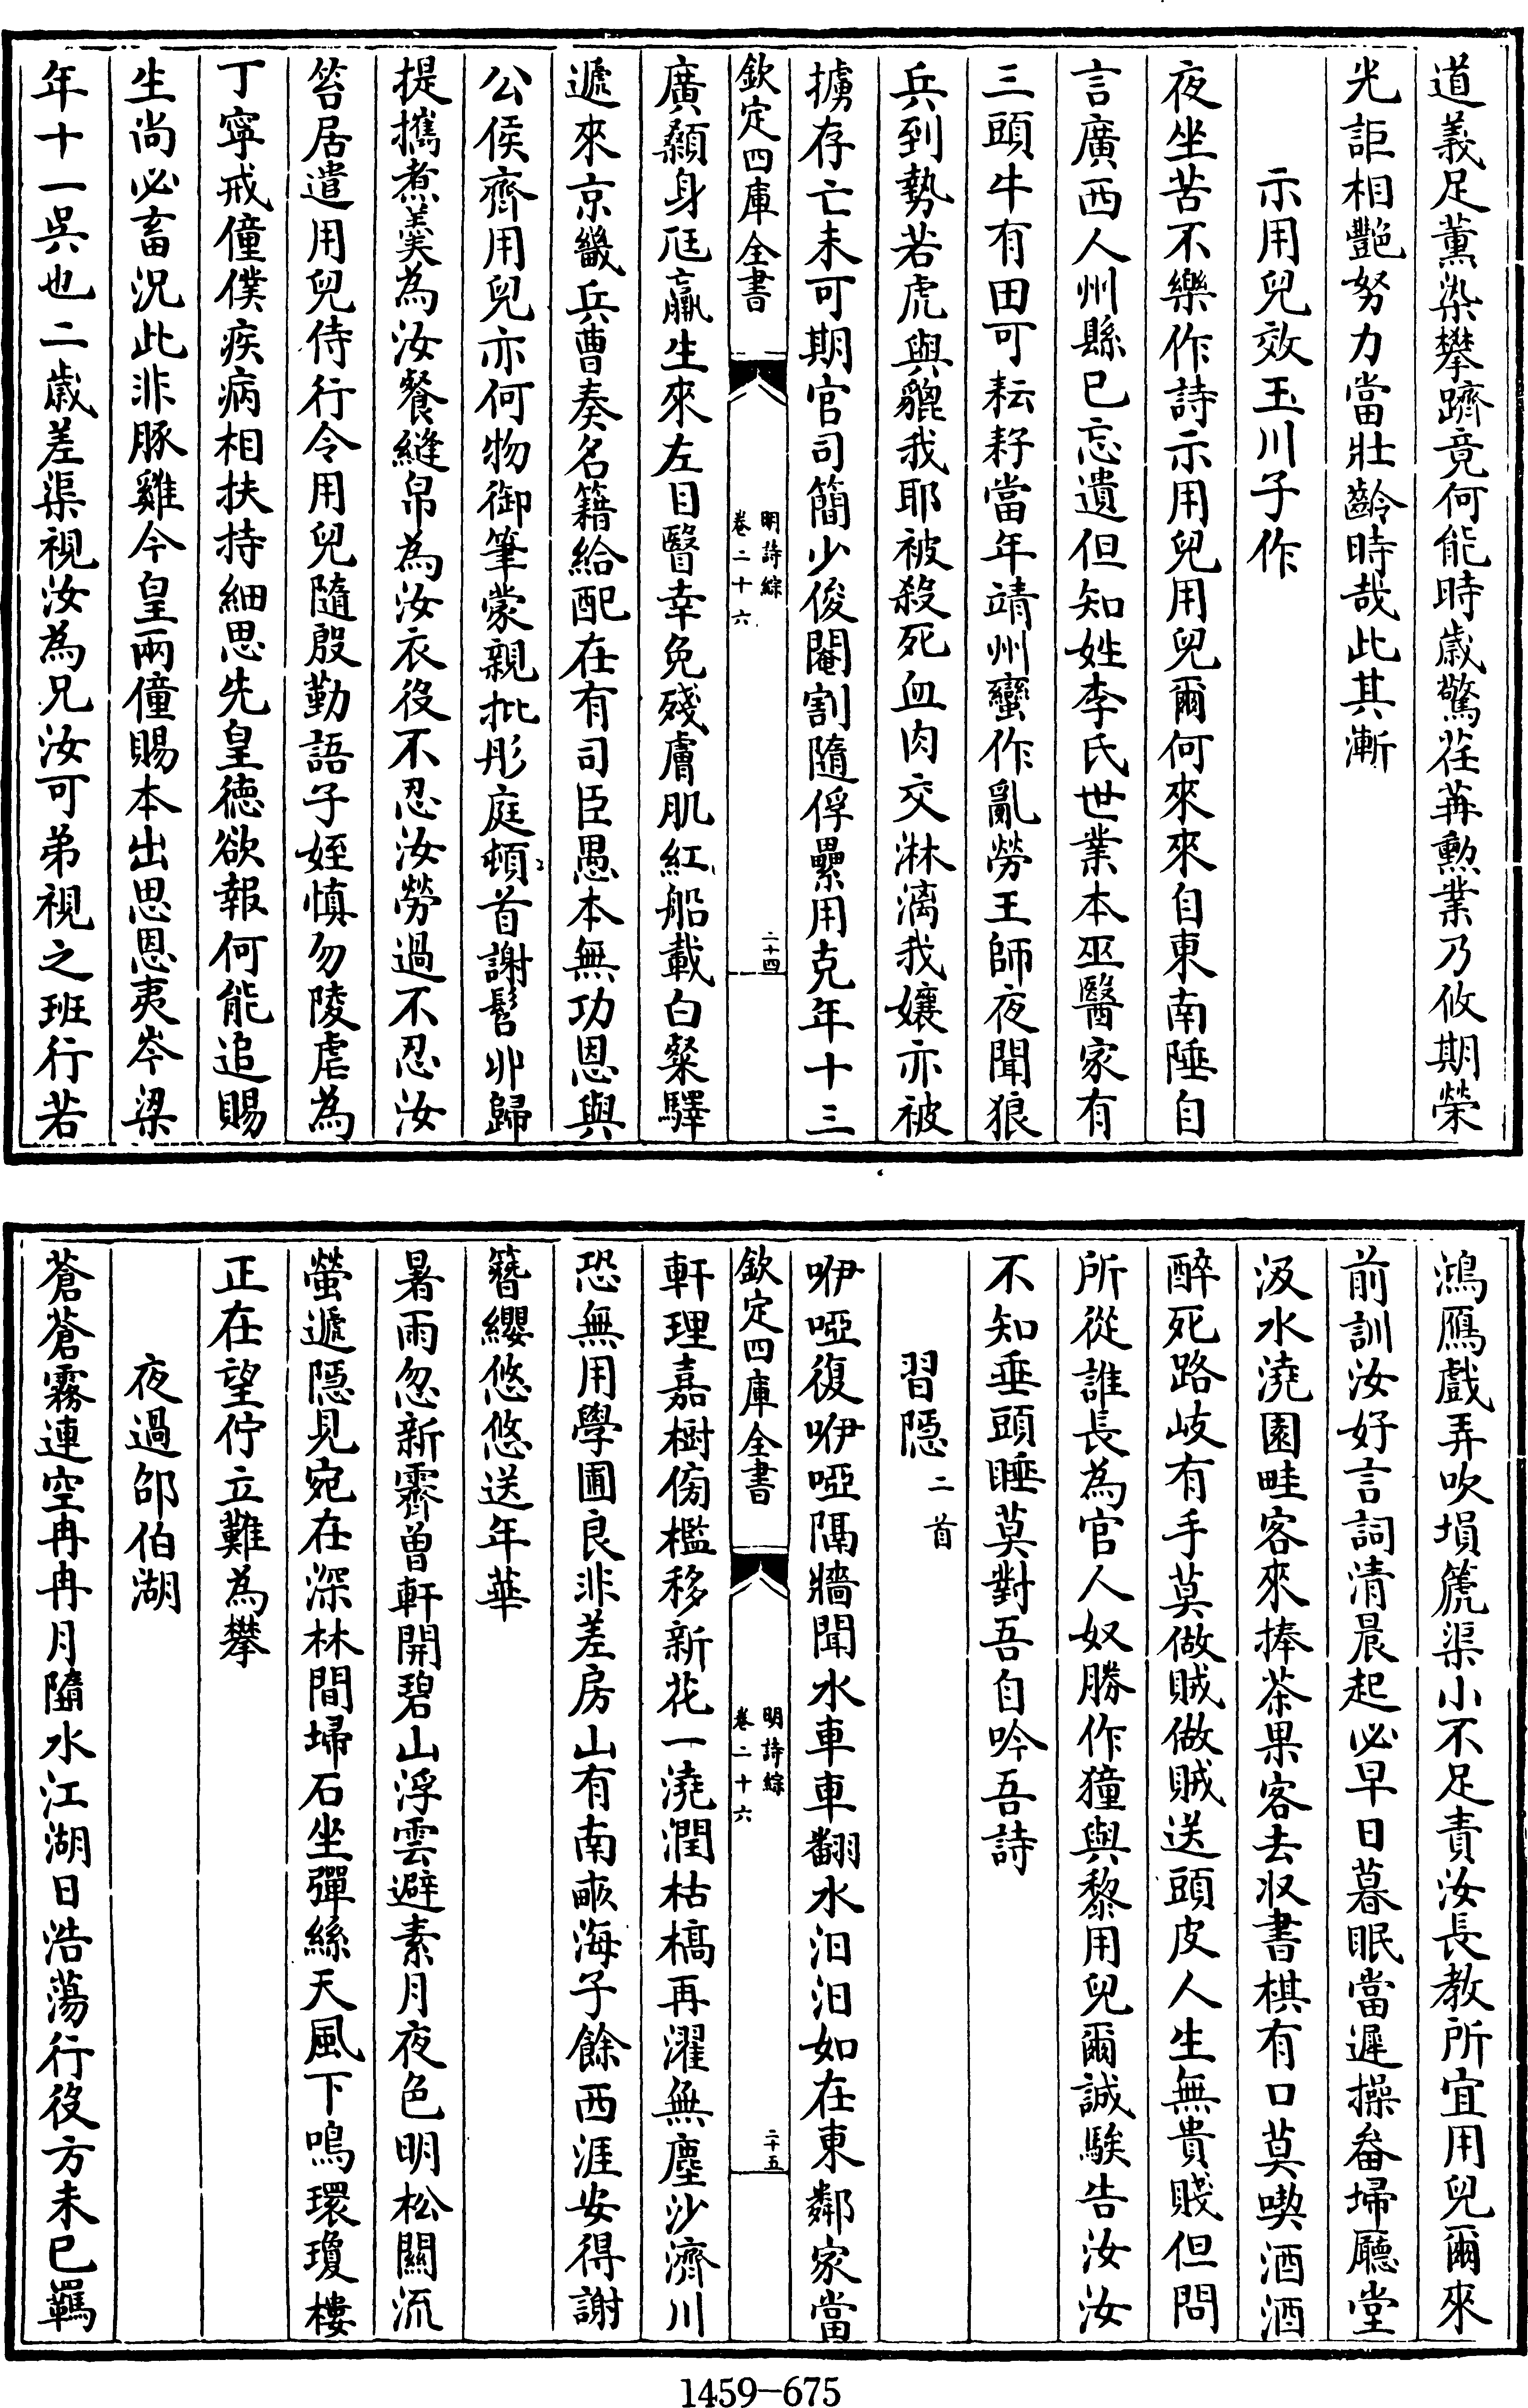 道義足薰染攀躋竟何能時歲驚荏苒勲業乃攸期榮
光詎相艷努力當壯齡時哉此其漸
示用兒效玉川子作
夜坐苦不樂作詩示用兒用兒爾何來來自東南陲自
言廣西人州縣已忘遺但知姓李氏世業本巫醫家有
三頭牛有田可耘耔當年靖州蠻作亂勞王師夜聞狼
兵到勢若虎與貔我耶被殺死血肉交淋漓我孃亦被
擄存亡未可期官司簡少俊閹割隨俘纍用克年十三
欽定四庫全書
明詩綜
卷二十六
二十四
廣顙身尫羸生來左目瞖幸免殘膚肌紅船載白粲驛
遞來京畿兵曹奏名籍給配在有司臣愚本無功恩與
公侯齊用兒亦何物御筆蒙親批彤庭頓首謝髻丱歸
提攜煮羹為汝餐縫帛為汝衣役不忍汝勞過不忍汝
笞居遣用兒侍行令用兒隨殷勤語子姪慎勿陵虐為
丁寧戒僮僕疾病相扶持細思先皇德欲報何能追賜
生尚必畜況此非豚雞今皇兩僮賜本出思恩夷岑梁
年十一吳也二歲差渠視汝為兄汝可弟視之班行若
鴻鴈戲弄吹塤篪渠小不足責汝長教所宜用兒爾來
前訓汝好言詞清晨起必早日暮眠當遲操畚埽廳堂
汲水澆園畦客來捧茶果客去収書棋有口莫喫酒酒
醉死路岐有手莫做賊做賊送頭皮人生無貴賤但問
所從誰長為官人奴勝作獞與黎用兒爾誠騃告汝汝
不知垂頭睡莫對吾自吟吾詩
習隱二首
咿啞復咿啞隔牆聞水車車翻水汩汩如在東鄰家當
欽定四庫全書
明詩綜
卷二十六
二十五
軒理嘉樹傍檻移新花一澆潤枯槁再濯無塵沙濟川
恐無用學圃良非差房山有南畝海子餘西涯安得謝
簪纓悠悠送年華
暑雨忽新霽曾軒開碧山浮雲避素月夜色明松關流
螢遞隱見宛在深林間埽石坐彈絲天風下鳴環瓊樓
正在望佇立難為攀
夜過邵伯湖
蒼蒼霧連空冉冉月隨水江湖日浩蕩行役方未已羈
1459-675